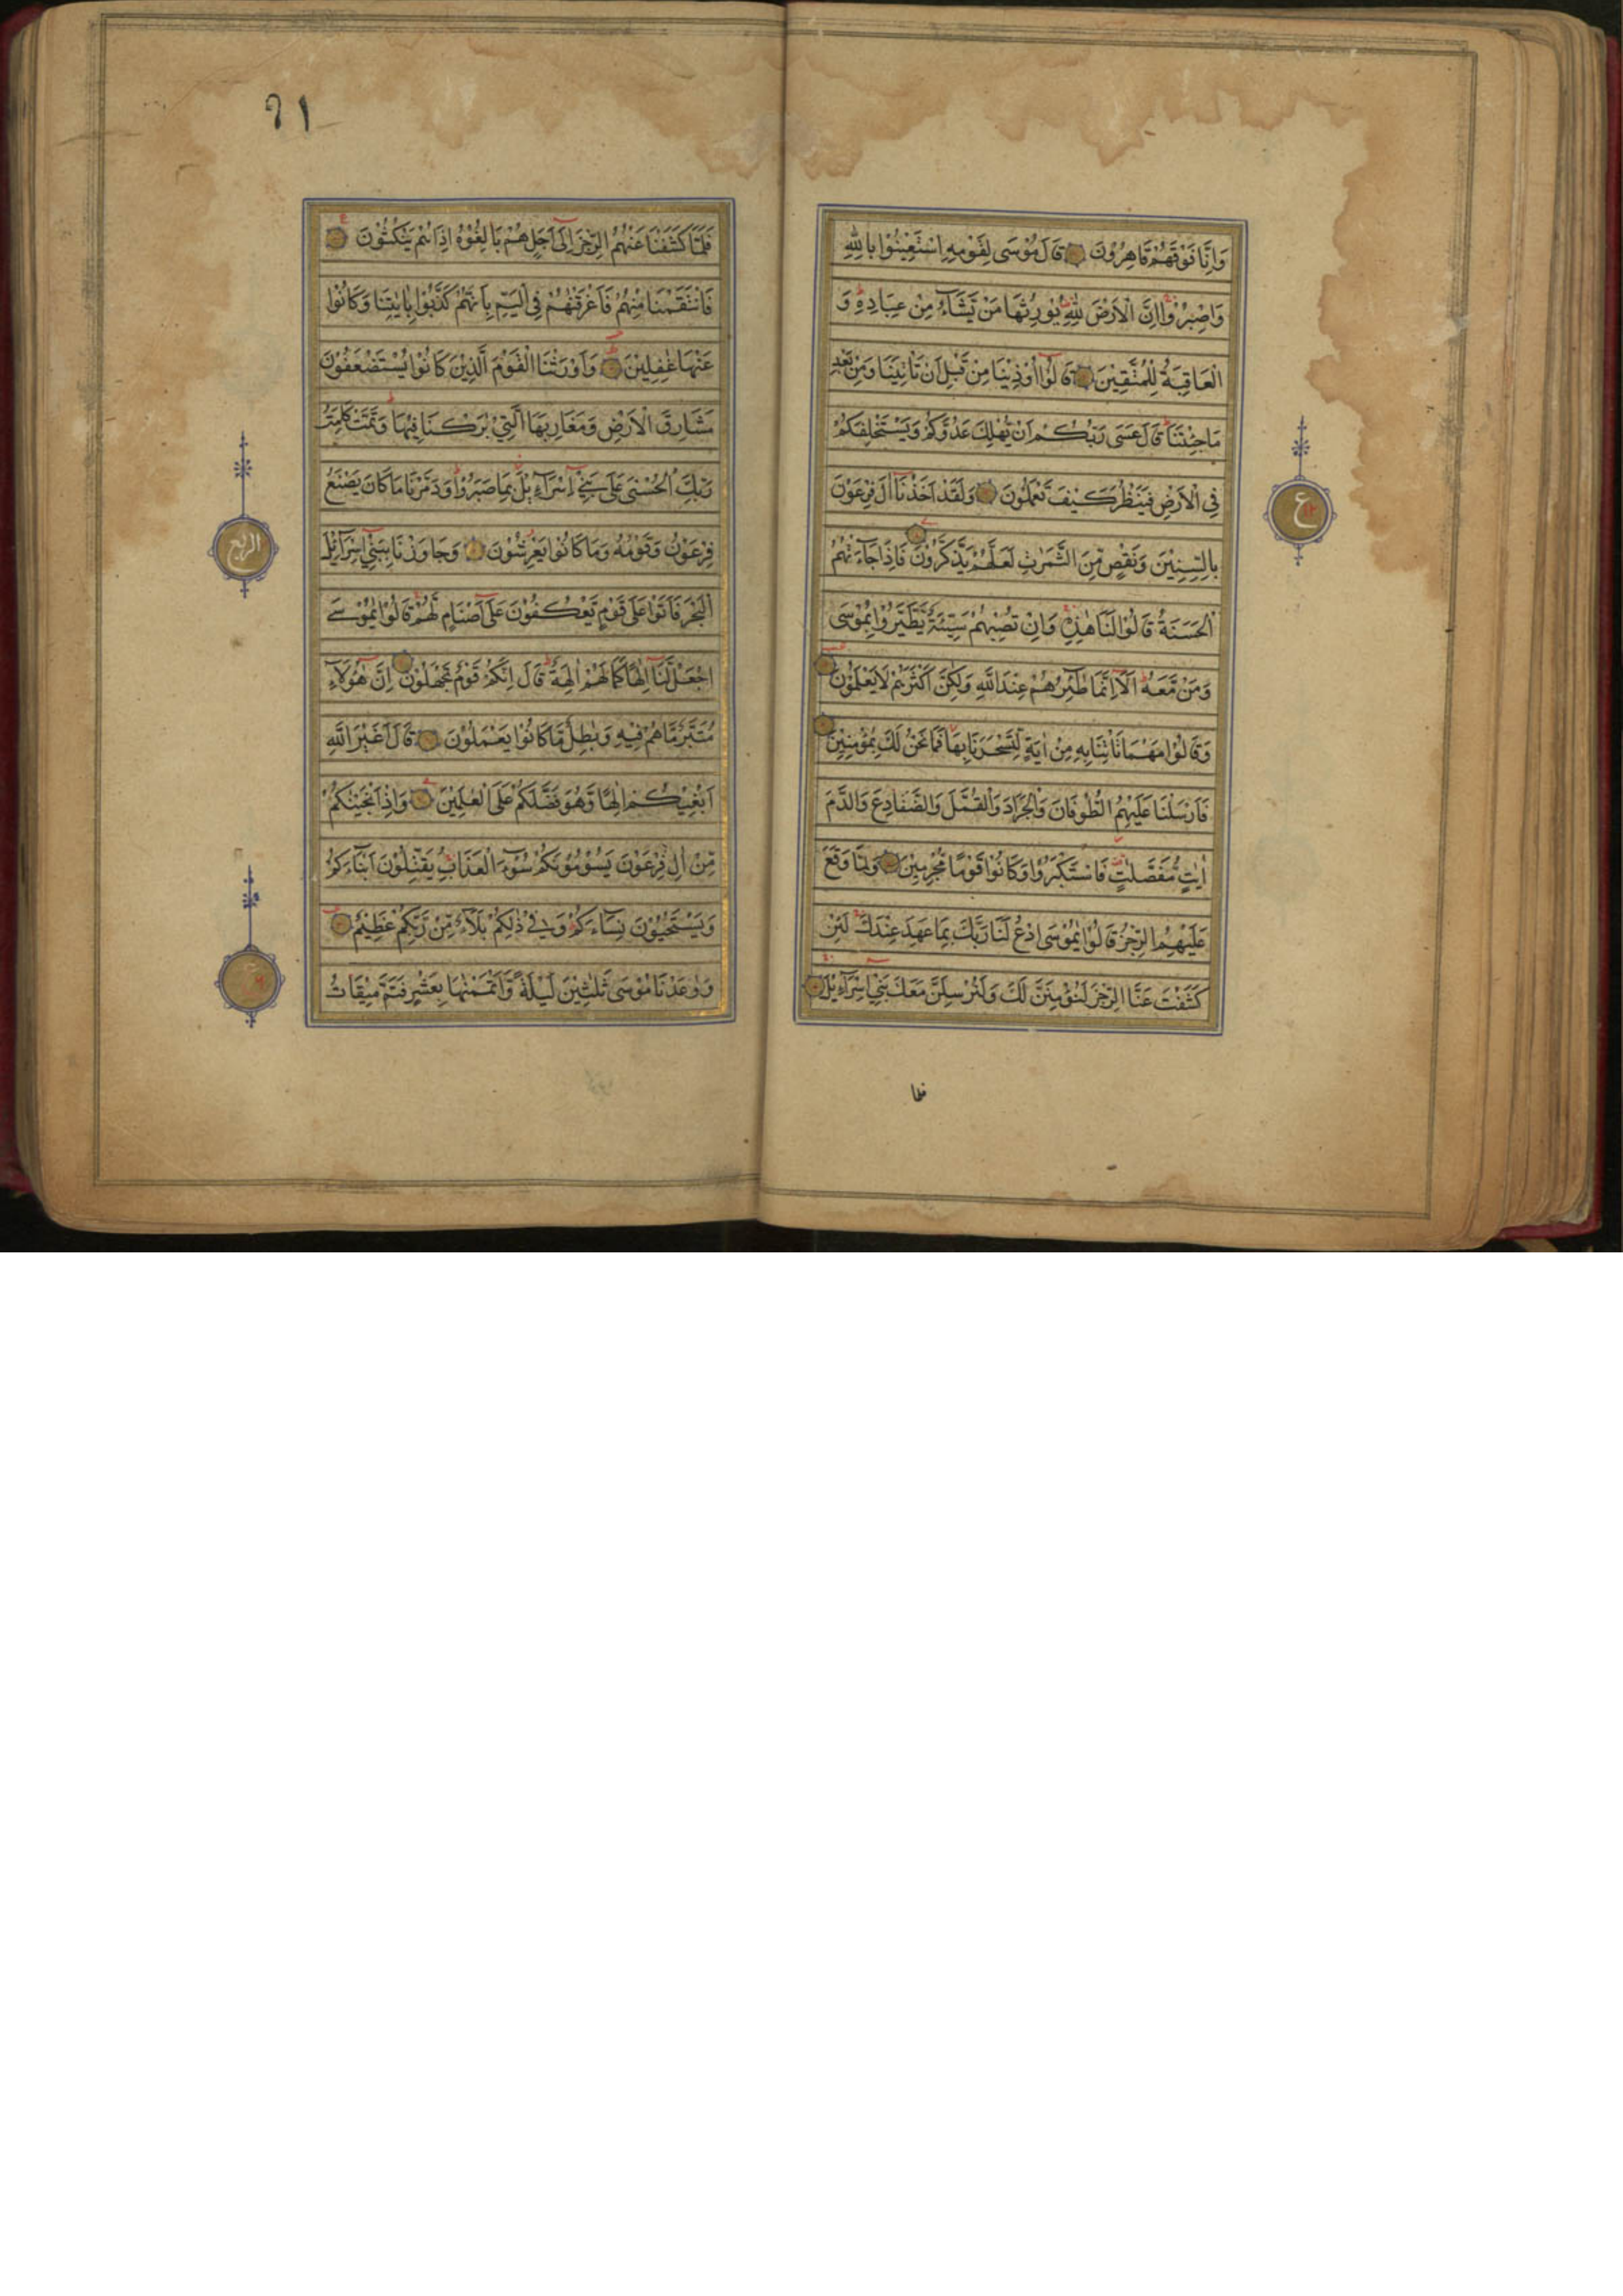 وَاِنَّا فَوْقَهُمْ قَاهِرُوْنَ قَالَ مُوْسَى لِقَوْمِهِ اسْتَعِيْنُوْا بِاللّٰهِ
وَاصْبِرُوْا اِنَّ الْاَرْضَ لِلّٰهِ يُوْرِثُهَا مَنْ يَّشَآءُ مِنْ عِبَادِهٖ وَ
الْعَاقِبَةُ لِلْمُتَّقِيْنَ قَالُوْا اُوْذِيْنَا مِنْ قَبْلِ اَنْ تَاْتِيَنَا وَمِنْ بَعْدِ
مَا جِئْتَنَا قَالَ عَسَى رَبُّكُمْ اَنْ يُّهْلِكَ عَدُوَّكُمْ وَيَسْتَخْلِفَكُمْ
فِي الْاَرْضِ فَيَنْظُرَ كَيْفَ تَعْمَلُوْنَ وَلَقَدْ اَخَذْنَا اٰلَ فِرْعَوْنَ
بِالسِّنِيْنَ وَنَقْصٍ مِّنَ الثَّمَرٰتِ لَعَلَّهُمْ يَذَّكَّرُوْنَ فَاِذَا جَآءَتْهُمُ
الْحَسَنَةُ قَالُوْا لَنَا هٰذِهٖ وَاِنْ تُصِبْهُمْ سَيِّئَةٌ يَّطَّيَّرُوْا بِمُوْسَى
وَمَنْ مَّعَهٗ اَلَآ اِنَّمَا طٰٓئِرُهُمْ عِنْدَ اللّٰهِ وَلٰكِنَّ اَكْثَرَهُمْ لَا يَعْلَمُوْنَ
وَقَالُوْا مَهْمَا تَاْتِنَا بِهٖ مِنْ اٰيَةٍ لِّتَسْحَرَنَا بِهَا فَمَا نَحْنُ لَكَ بِمُؤْمِنِيْنَ
فَاَرْسَلْنَا عَلَيْهِمُ الطُّوْفَانَ وَالْجَرَادَ وَالْقُمَّلَ وَالضَّفَادِعَ وَالدَّمَ
اٰيٰتٍ مُّفَصَّلٰتٍ فَاسْتَكْبَرُوْا وَكَانُوْا قَوْمًا مُّجْرِمِيْنَ وَلَمَّا وَقَعَ
عَلَيْهِمُ الرِّجْزُ قَالُوْا يٰمُوْسَى ادْعُ لَنَا رَبَّكَ بِمَا عَهِدَ عِنْدَكَ لَئِنْ
كَشَفْتَ عَنَّا الرِّجْزَ لَنُؤْمِنَنَّ لَكَ وَلَنُرْسِلَنَّ مَعَكَ بَنِيْٓ اِسْرَآءِيْلَ
ع
فلما
٦١
فَلَمَّا كَشَفْنَا عَنْهُمُ الرِّجْزَ اِلٰٓى اَجَلٍ هُمْ بَالِغُوْهُ اِذَا هُمْ يَنْكُثُوْنَ
فَانْتَقَمْنَا مِنْهُمْ فَاَغْرَقْنٰهُمْ فِي الْيَمِّ بِاَنَّهُمْ كَذَّبُوْا بِاٰيٰتِنَا وَكَانُوْا
عَنْهَا غٰفِلِيْنَ وَاَوْرَثْنَا الْقَوْمَ الَّذِيْنَ كَانُوْا يُسْتَضْعَفُوْنَ
مَشَارِقَ الْاَرْضِ وَمَغَارِبَهَا الَّتِيْ بٰرَكْنَا فِيْهَا وَتَمَّتْ كَلِمَتُ
رَبِّكَ الْحُسْنٰى عَلٰى بَنِيْٓ اِسْرَآءِيْلَ بِمَا صَبَرُوْا وَدَمَّرْنَا مَا كَانَ يَصْنَعُ
فِرْعَوْنُ وَقَوْمُهٗ وَمَا كَانُوْا يَعْرِشُوْنَ وَجَاوَزْنَا بِبَنِيْٓ اِسْرَآئِيْلَ
الْبَحْرَ فَاَتَوْا عَلٰى قَوْمٍ يَّعْكُفُوْنَ عَلٰٓى اَصْنَامٍ لَّهُمْ قَالُوْا يٰمُوْسَى
اجْعَلْ لَّنَآ اِلٰهًا كَمَا لَهُمْ اٰلِهَةٌ قَالَ اِنَّكُمْ قَوْمٌ تَجْهَلُوْنَ اِنَّ هٰٓؤُلَآءِ
مُتَبَّرٌ مَّا هُمْ فِيْهِ وَبٰطِلٌ مَّا كَانُوْا يَعْمَلُوْنَ قَالَ اَغَيْرَ اللّٰهِ
اَبْغِيْكُمْ اِلٰهًا وَّهُوَ فَضَّلَكُمْ عَلَى الْعٰلَمِيْنَ وَاِذْ اَنْجَيْنٰكُمْ
مِّنْ اٰلِ فِرْعَوْنَ يَسُوْمُوْنَكُمْ سُوْٓءَ الْعَذَابِ يُقَتِّلُوْنَ اَبْنَآءَكُمْ
وَيَسْتَحْيُوْنَ نِسَآءَكُمْ وَفِيْ ذٰلِكُمْ بَلَآءٌ مِّنْ رَّبِّكُمْ عَظِيْمٌ
وَوٰعَدْنَا مُوْسٰى ثَلٰثِيْنَ لَيْلَةً وَّاَتْمَمْنٰهَا بِعَشْرٍ فَتَمَّ مِيْقَاتُ
الربع